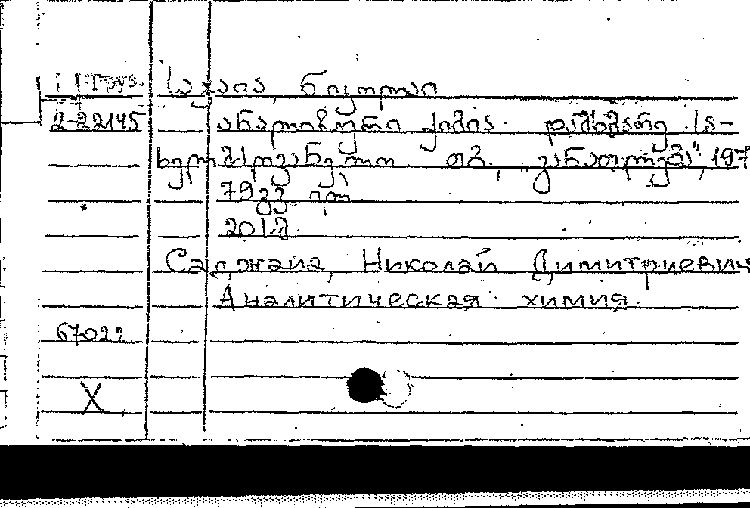 Груз. საჯაია, ნიკოლაი
2-22145 ანალიზური ქიმია. დამხმარე სა-
ხელმძღვანელო თბ., „განათლება", 197
79 გვ.
20 სმ.
Саджаиа, Николай Димитриевич
Аналитическая химия.
67022
X